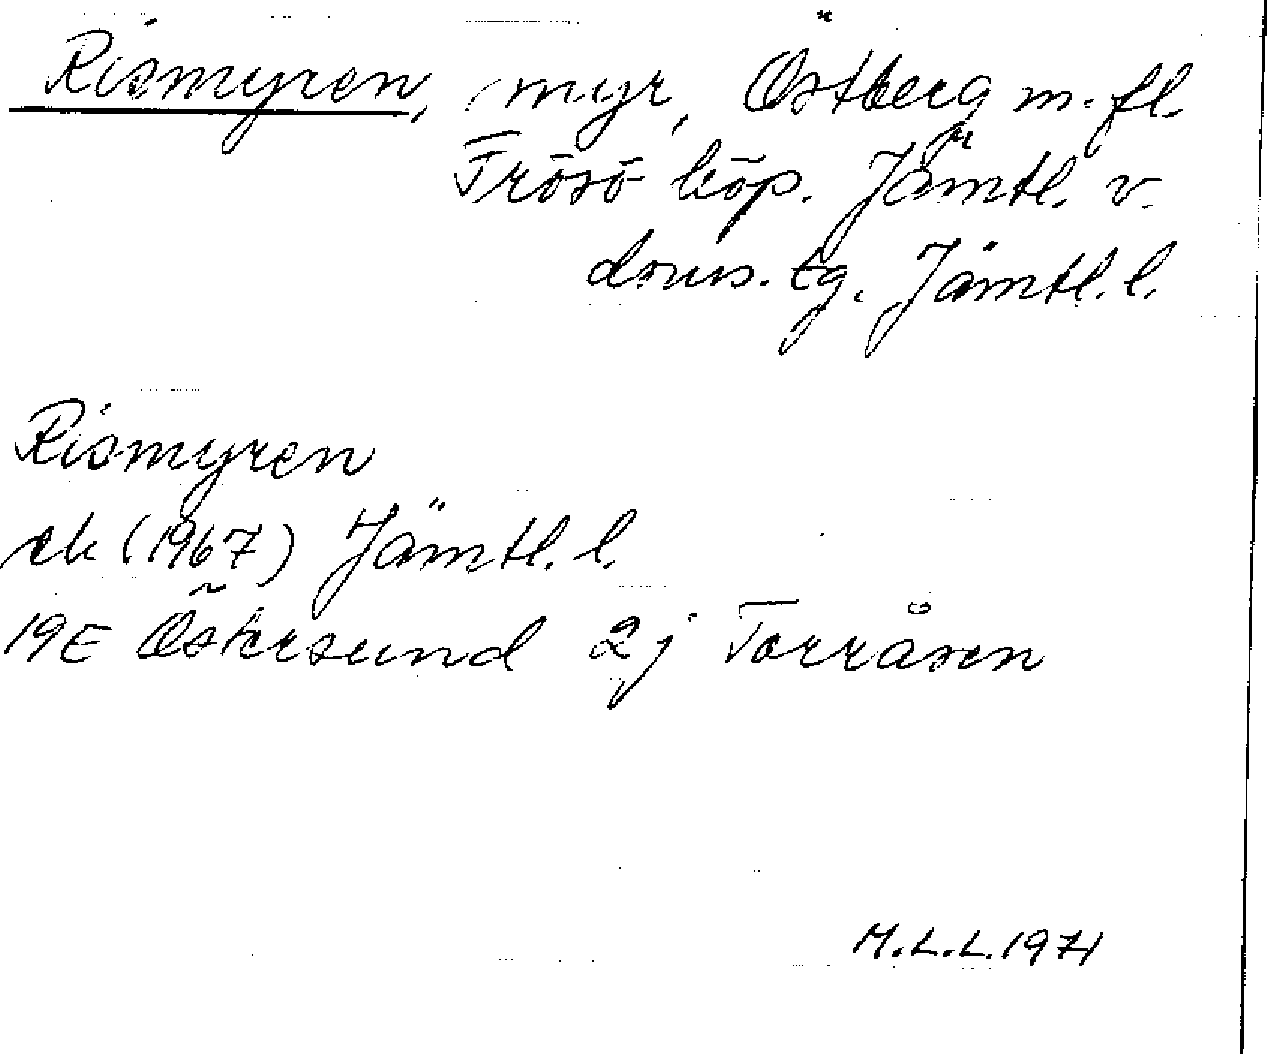 Rismyren, myr, Östberg m. fl.
Frösö köp. Jämtl. v.
doms. tg. Jämtl. l.
Rismyren
ek (1967) Jämtl. l.
19E Östersund 2j Torråsen
M.L.L. 1971